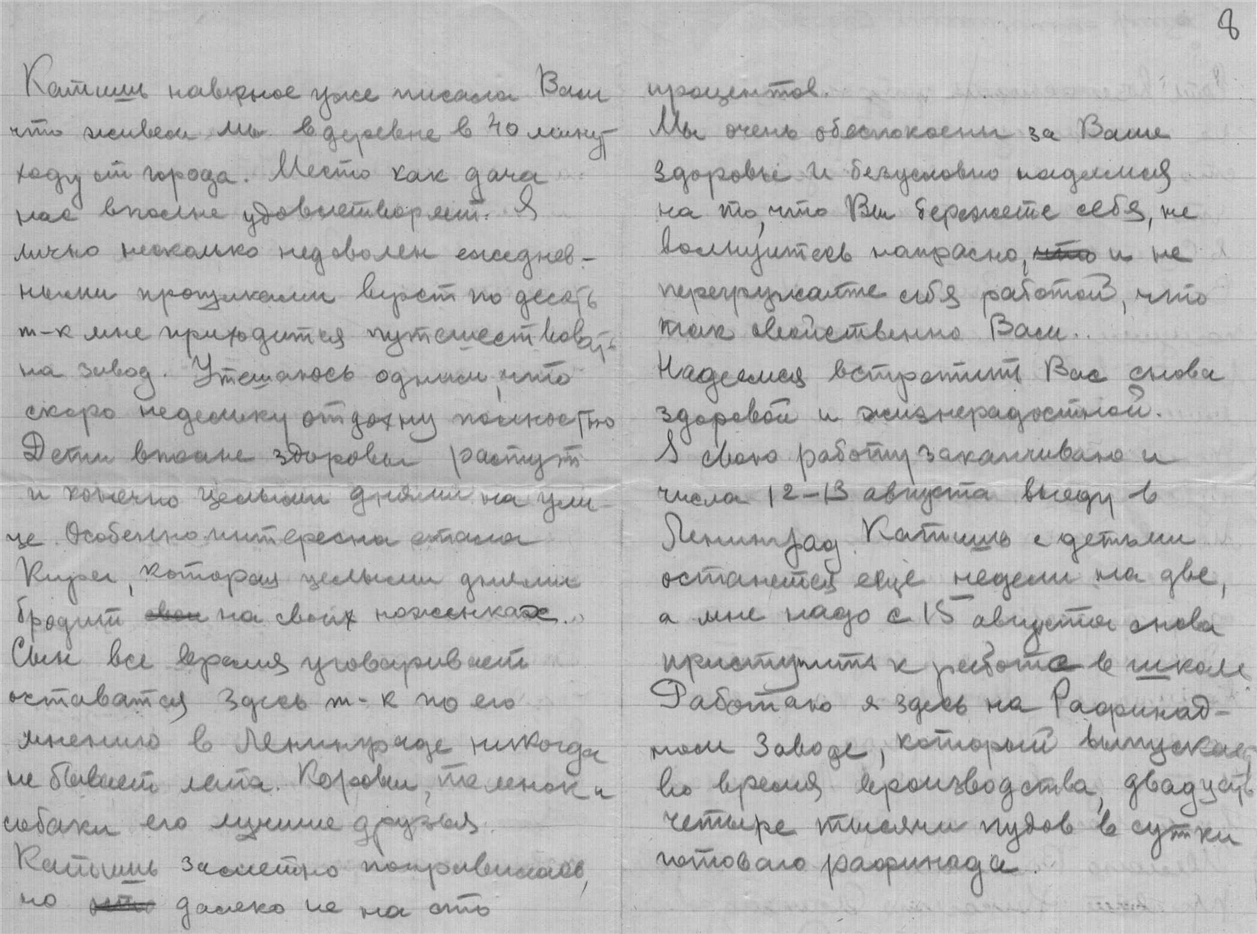 8
Катишь наверное уже писала Вам
что живем мы в деревне в 40 минут
ходу от города. Место как дача
нас вполне удовлетворяет. Я
лично несколько недоволен ежеднев-
ными прогулками верст по десять
т-к мне приходится путешествовать
на завод. Утешаюсь одним, что
скоро недельку отдохну полностью
Дети вполне здоровы растут
и конечно целыми днями на ули-
це. Особенно интересна стала
Кира, которая целыми днями
бродит на своих ноженках..
Сын все время уговаривает
оставатся здесь т-к по его
мнению в Ленинграде никогда
не бывает лета. Коровы, теленок и
собаки его лучшие друзья.
Катишь заметно поправилась,
но далеко не на сто
процентов.
Мы очень обеспокоены за Ваше
здоровье и безусловно надеемся
на то, что Вы бережете себя, не
волнуйтесь напрасно, и не
перегружайте себя работой, что
так свойственно Вам..
Надеемся встретить Вас снова
здоровой и жизнерадостной.
Я свою работу заканчиваю и
числа 12-13 августа выеду в
Ленинград. Катишь с детьми
останется еще недели на две,
а мне надо с 15 августа снова
приступить к работе в школе
Работаю я здесь на Рафинад-
ном Заводе, который выпускает
во время производства, двадцать
четыре тысячи пудов в сутки
готового рафинада.